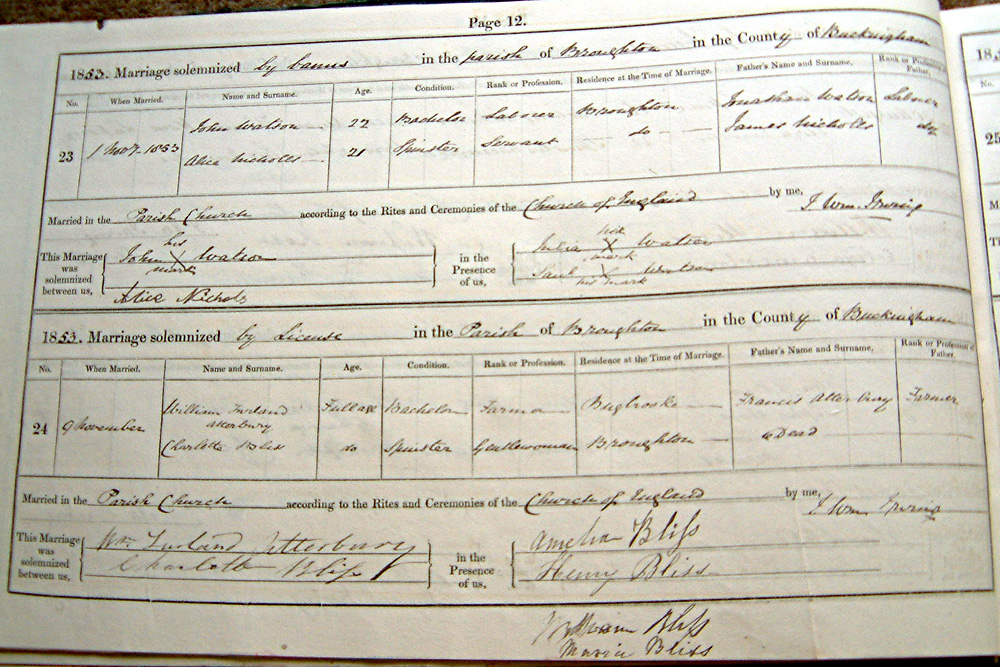 Page 12.
1853. Marriage solemnized by banns in the parish of Broughton in the County of Buckingham
No. When Married. Name and Surname. Age. Condition. Rank or Profession. Residence at the Time of Marriage. Father's Name and Surname. Rank or Profession of Father.
John Watson 22 Bachelor Laborer Broughton Jonathan Watson Laborer
23 1 Novr. 1853 Alice Nicholls 21 Spinster Servant do James Nicholls do
Married in the Parish Church according to the Rites and Ceremonies of the Church of England by me, J Wm Irving
This Marriage was solemnized between us,
his
John X Watson
mark
Alice Nichols
in the Presence of us,
Julia X Watson
mark
X Watson
his mark
1853. Marriage solemnized by License in the Parish of Broughton in the County of Buckingham
No. When Married. Name and Surname. Age. Condition. Rank or Profession. Residence at the Time of Marriage. Father's Name and Surname. Rank or Profession of Father.
William Furland Atterbury Full age Bachelor Farmer Bugbrooke Francis Atterbury Farmer
24 9 November Charlotte Bliss do Spinster Gentlewoman Broughton Dead
Married in the Parish Church according to the Rites and Ceremonies of the Church of England by me, J Wm Irving
This Marriage was solemnized between us,
Wm Furland Atterbury
Charlotte Bliss
in the Presence of us,
Amelia Bliss
Henry Bliss
William Bliss
Maria Bliss
18
No.
25